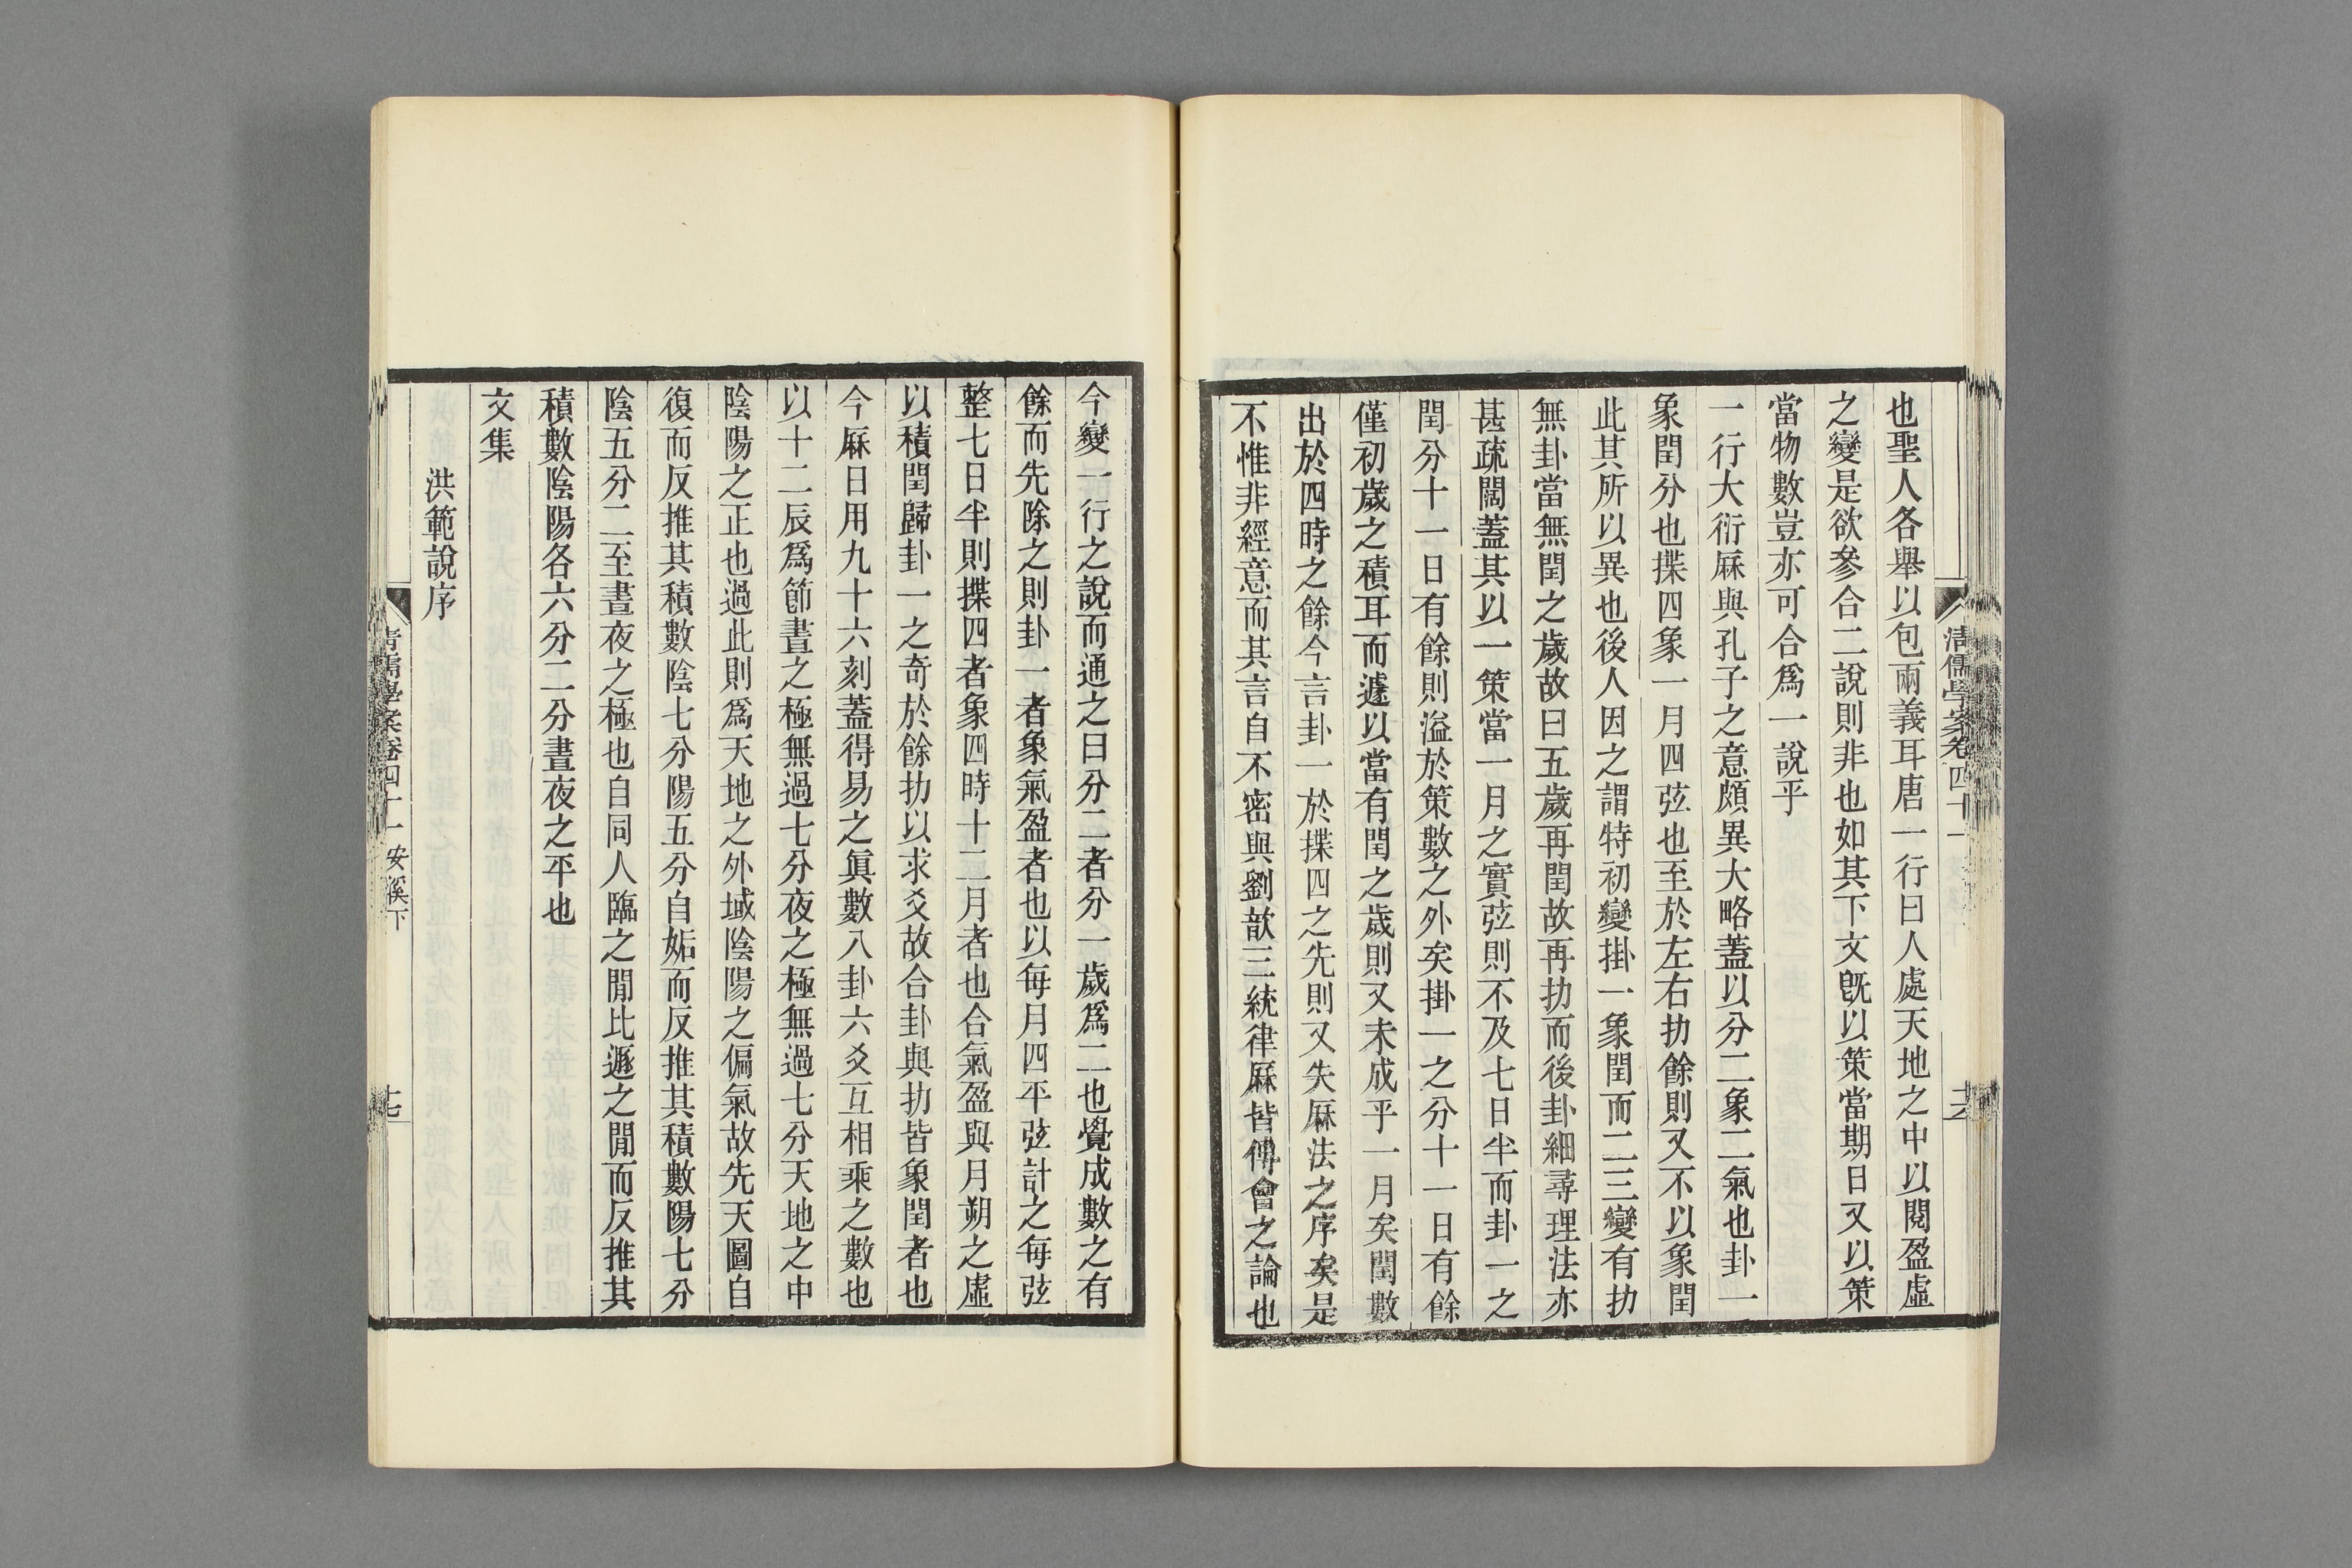 也聖人各舉以包兩義耳唐一行曰人處天地之中以閱盈虛
之變是欲參合二說則非也如其下文旣以策當期日又以策
當物數豈亦可合爲一說乎
一行大衍厤與孔子之意頗異大略蓋以分二象二氣也卦一
象閏分也揲四象一月四弦也至於左右扐餘則又不以象閏
此其所以異也後人因之謂特初變掛一象閏而二三變有扐
無卦當無閏之歲故曰五歲再閏故再扐而後卦細尋理法亦
甚疏闊蓋其以一策當一月之實弦則不及七日半而卦一之
閏分十一日有餘則溢於策數之外矣掛一之分十一日有餘
僅初歲之積耳而遽以當有閏之歲則又未成乎一月矣閏數
出於四時之餘今言卦一於揲四之先則又失厤法之序矣是
不惟非經意而其言自不密與劉歆三統律厤皆傅會之論也
清儒學案卷四十一
今變一行之說而通之曰分二者分一歲爲二也覺成數之有
餘而先除之則卦一者象氣盈者也以每月四平弦計之每弦
整七日半則揲四者象四時十二月者也合氣盈與月朔之虛
以積閏歸卦一之奇於餘扐以求爻故合卦與扐皆象閏者也
今厤日用九十六刻蓋得易之眞數八卦六爻互相乘之數也
以十二辰爲節晝之極無過七分夜之極無過七分天地之中
陰陽之正也過此則爲天地之外域陰陽之偏氣故先天圖自
復而反推其積數陰七分陽五分自姤而反推其積數陽七分
陰五分二至晝夜之極也自同人臨之閒比遯之閒而反推其
積數陰陽各六分二分晝夜之平也
文集
洪範說序
清儒學案卷四十一 安溪下 十七